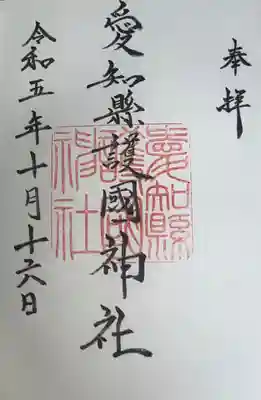 奉拝
愛知縣護國神社
愛知縣
護國
神社
令和五年十月十六日